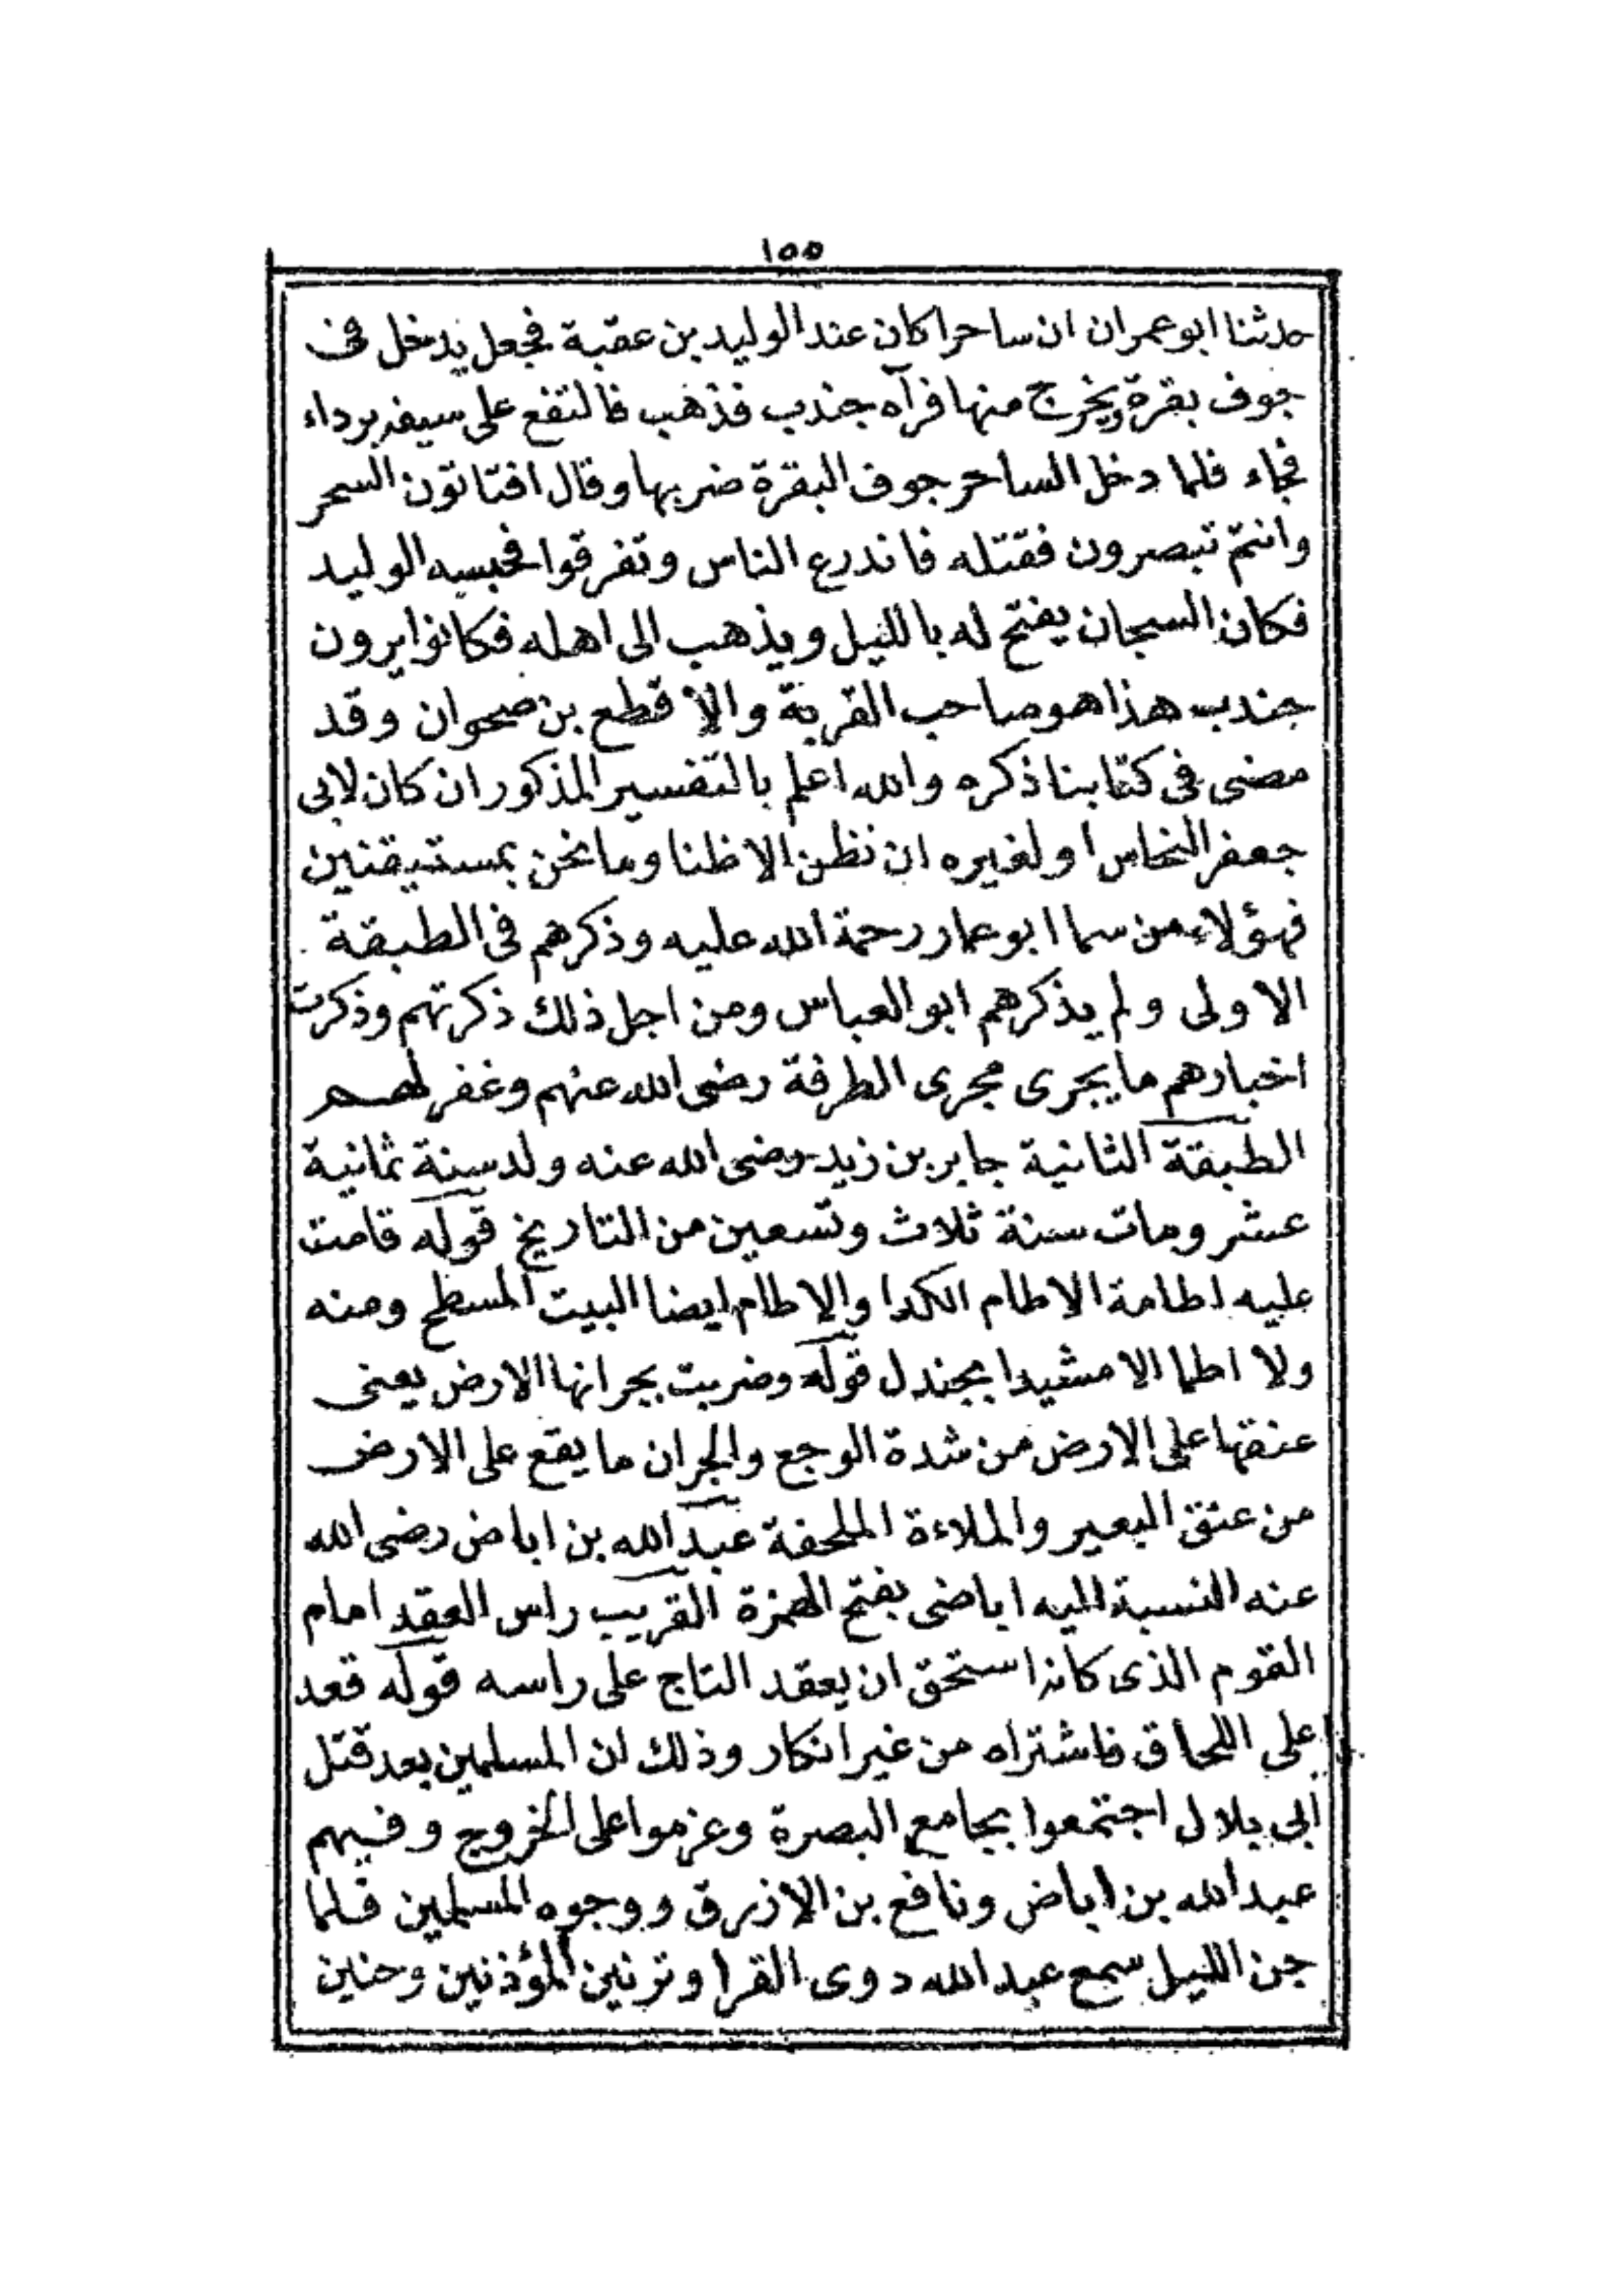 ١٥٥
حدثنا ابو عمران ان ساحرا كان عند الوليد بن عقبة فجعل يدخل فى
جوف بقرة ويخرج منها فرآه جندب فذهب فالتفع على سيفه برداء
فجاء فلما دخل الساحر جوف البقرة ضربها وقال افتاتون السحر
وانتم تبصرون فقتله فانذرع الناس وتفرقوا فحبسه الوليد
فكان السجان يفتح له بالليل ويذهب الى اهله فكانوا يرون
جندب هذا هو صاحب القربة والاقطع بن صحوان وقد
مضى فى كتابنا ذكره والله اعلم بالتفسير المذكور ان كان لابى
جعفر النحاس او لغيره ان نظن الا ظنا وما نحن بمستيقنين
فهؤلاء من سما ابو عمار رحمة الله عليه وذكرهم فى الطبقة
الاولى ولم يذكرهم ابو العباس ومن اجل ذلك ذكرتهم وذكرت
اخبارهم ما يجرى مجرى الطرفة رضى الله عنهم وغفر لهم
الطبقة الثانية جابر بن زيد رضى الله عنه ولد سنة ثمانية
عشر ومات سنة ثلاث وتسعين من التاريخ قوله قامت
عليه اطامة الاطام الكدا والاطام ايضا البيت المسطح ومنه
ولا اطما الا مشيدا بجندل قوله وضربت بجرانها الارض يعنى
عنقها على الارض من شدة الوجع والجران ما يقع على الارض
من عنق البعير والملاءة الملحفة عبد الله بن اباض رضى الله
عنه النسبة اليه اباضى بفتح الهمزة القريب راس العقد امام
القوم الذى كانه استحق ان يعقد التاج على راسه قوله قعد
على اللحاق فاشتراه من غير انكار وذلك ان المسلمين بعد قتل
ابى بلال اجتمعوا بجامع البصرة وعزموا على الخروج وفيهم
عبد الله بن اباض ونافع بن الازرق ووجوه المسلمين فلما
جن الليل سمع عبد الله دوى القرا وترنين المؤذنين وحنين